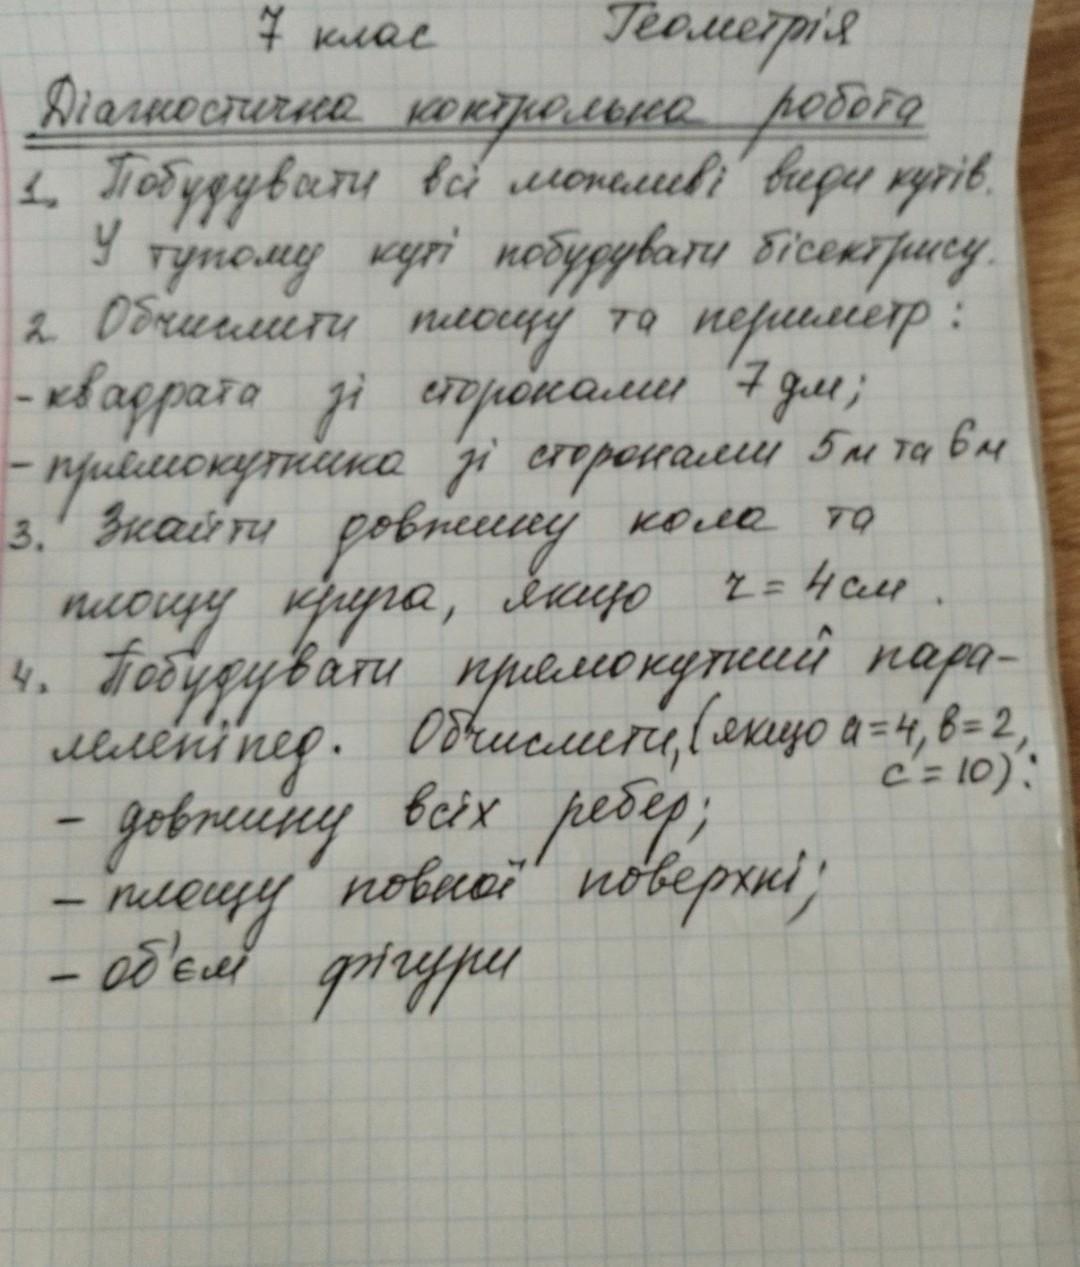 7 клас Геометрія
Діагностична контрольна робота
1. Побудувати всі можливі види кутів.
У тупому куті побудувати бісектрису.
2. Обчислити площу та периметр:
- квадрата зі сторонами 7 дм;
- прямокутника зі сторонами 5м та 6м
3. Знайти довжину кола та
площу круга, якщо r = 4 см.
4. Побудувати прямокутний пара-
лелепіпед. Обчислити, (якщо a=4, b=2,
c=10):
- довжину всіх ребер;
- площу повної поверхні;
- об'єм фігури